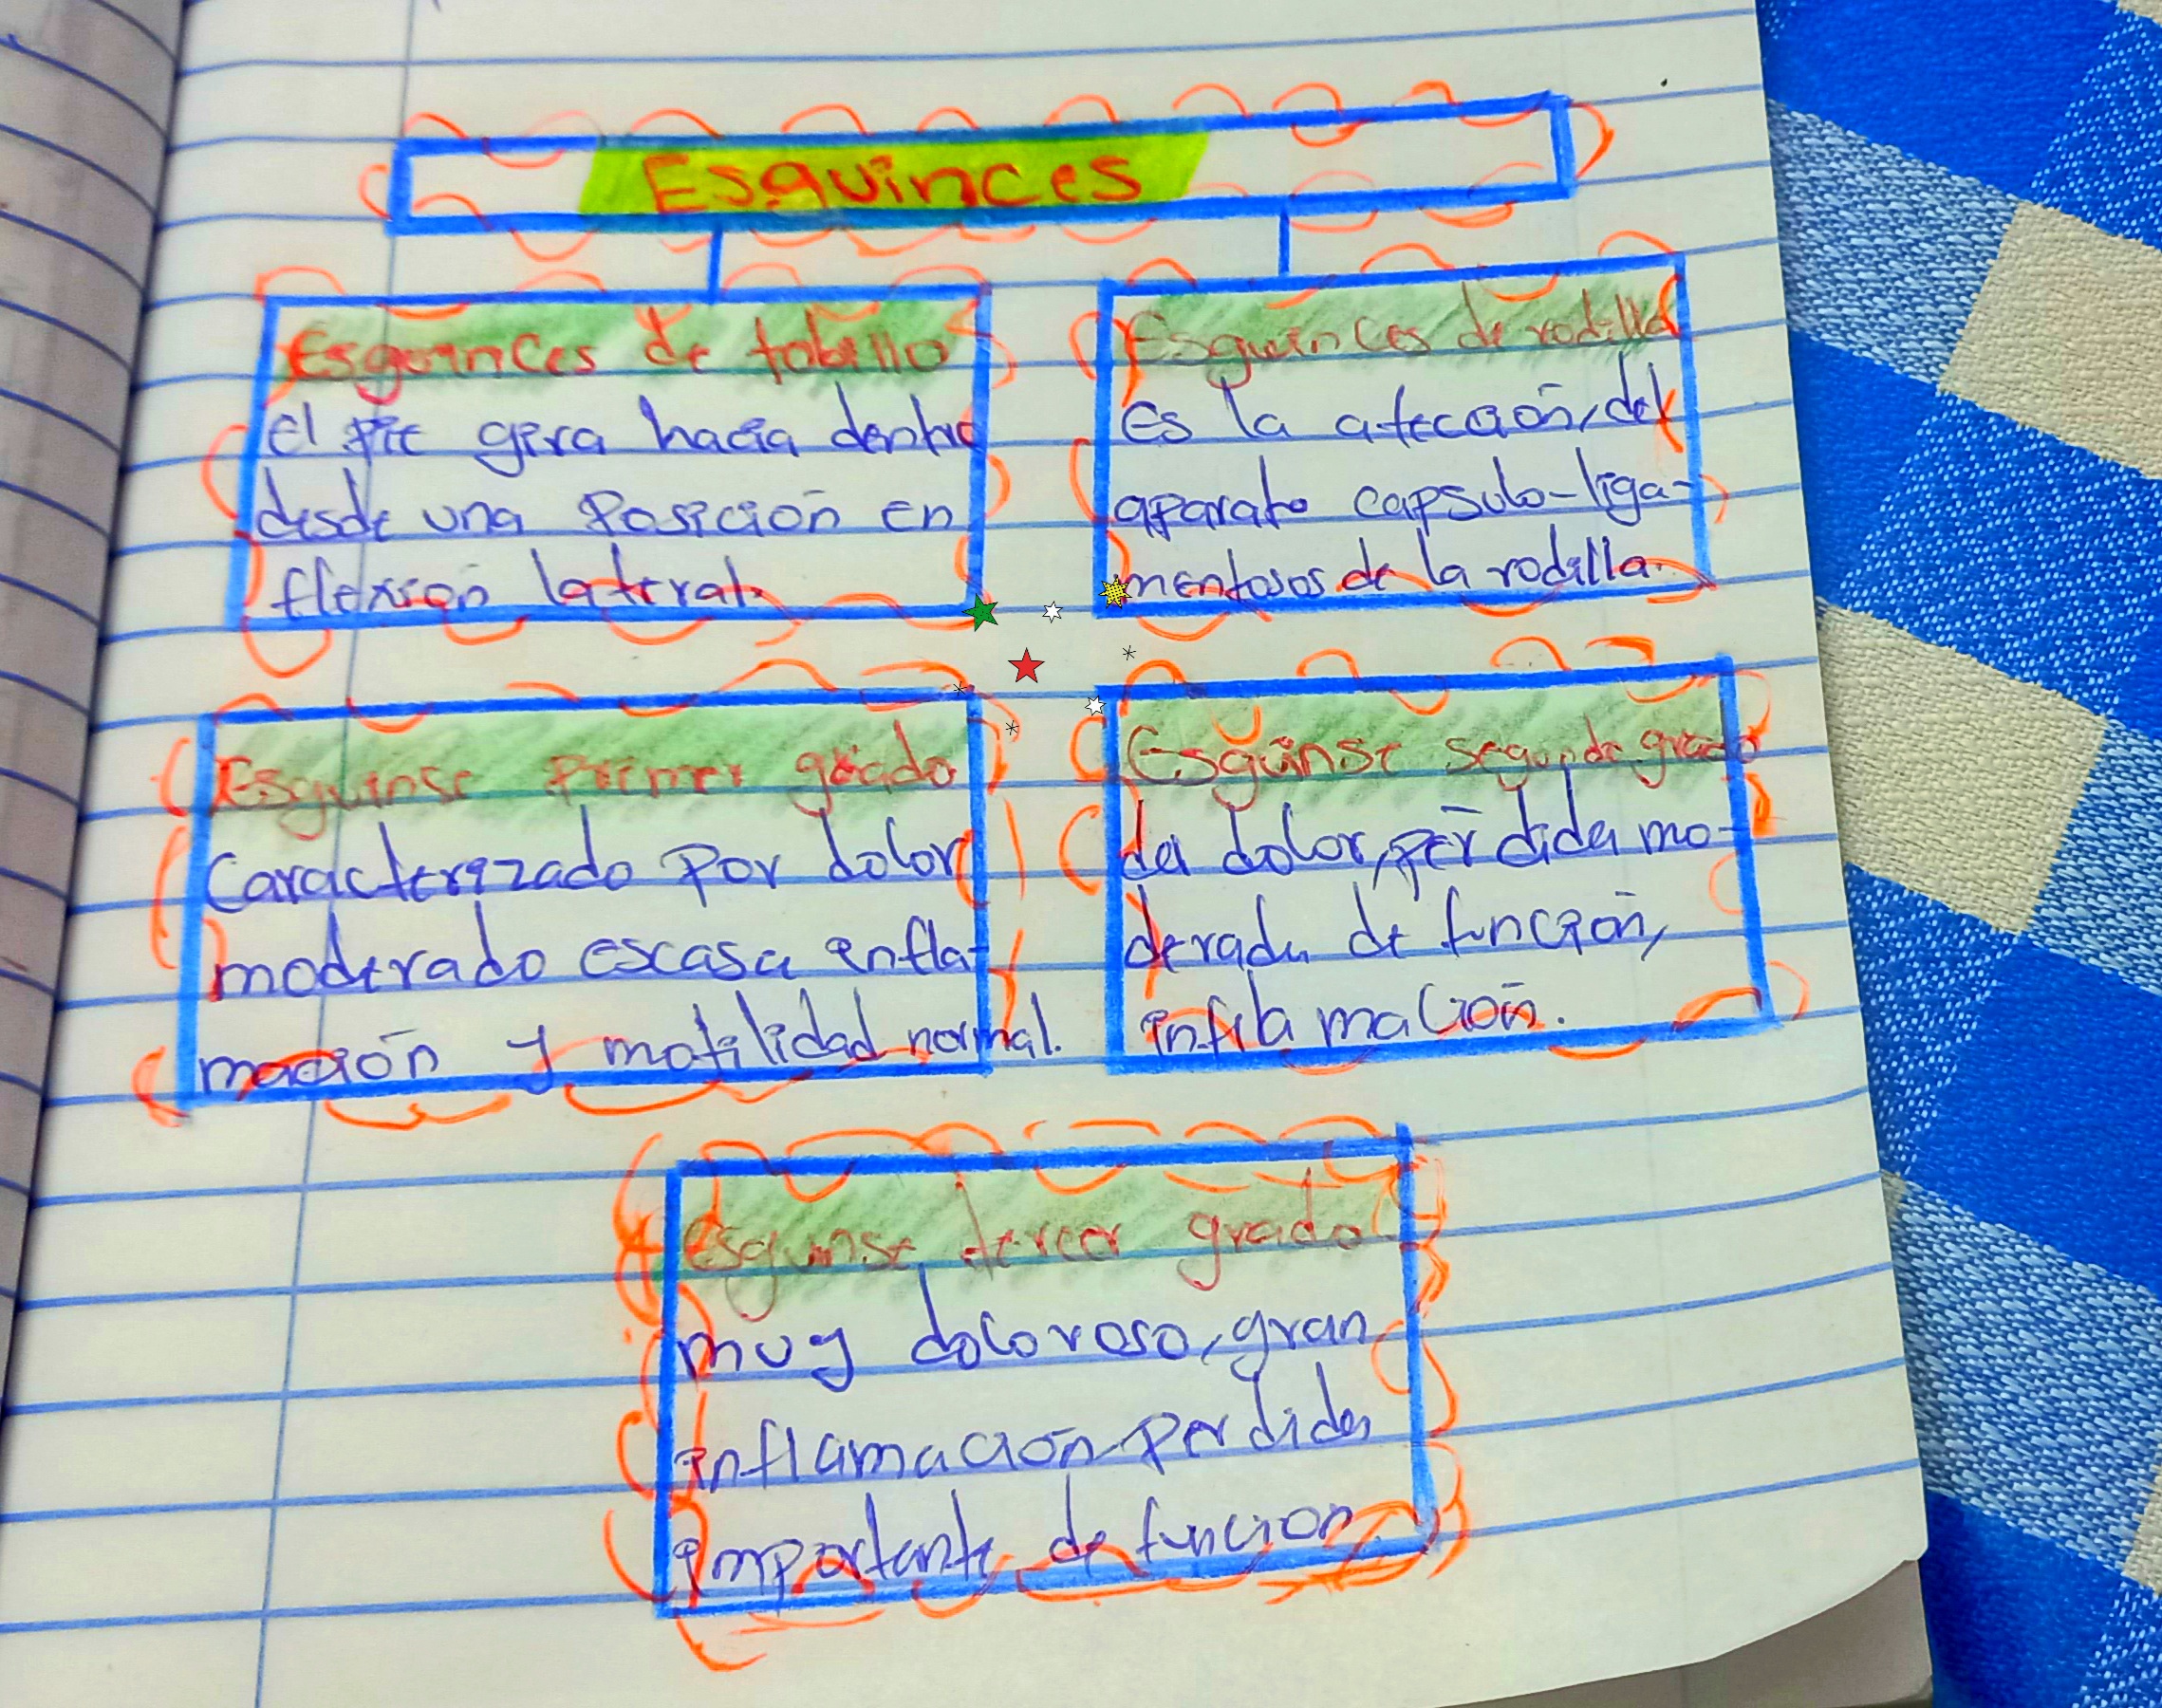 Esquinces
Esguinces de tobillo
el pie gira hacia dentro
desde una posición en
flexión lateral.
Esguinces de rodilla
Es la afección, del
aparato capsulo-liga-
mentosos de la rodilla.
Esguinse primer grado
Caracterizado por dolor
moderado escasa infla-
mación y motilidad normal.
Esguinse segundo grado
da dolor, pérdida mo-
derada de función,
infla mación.
esguinse tercer grado
muy doloroso, gran
inflamación perdida
importante de funcion